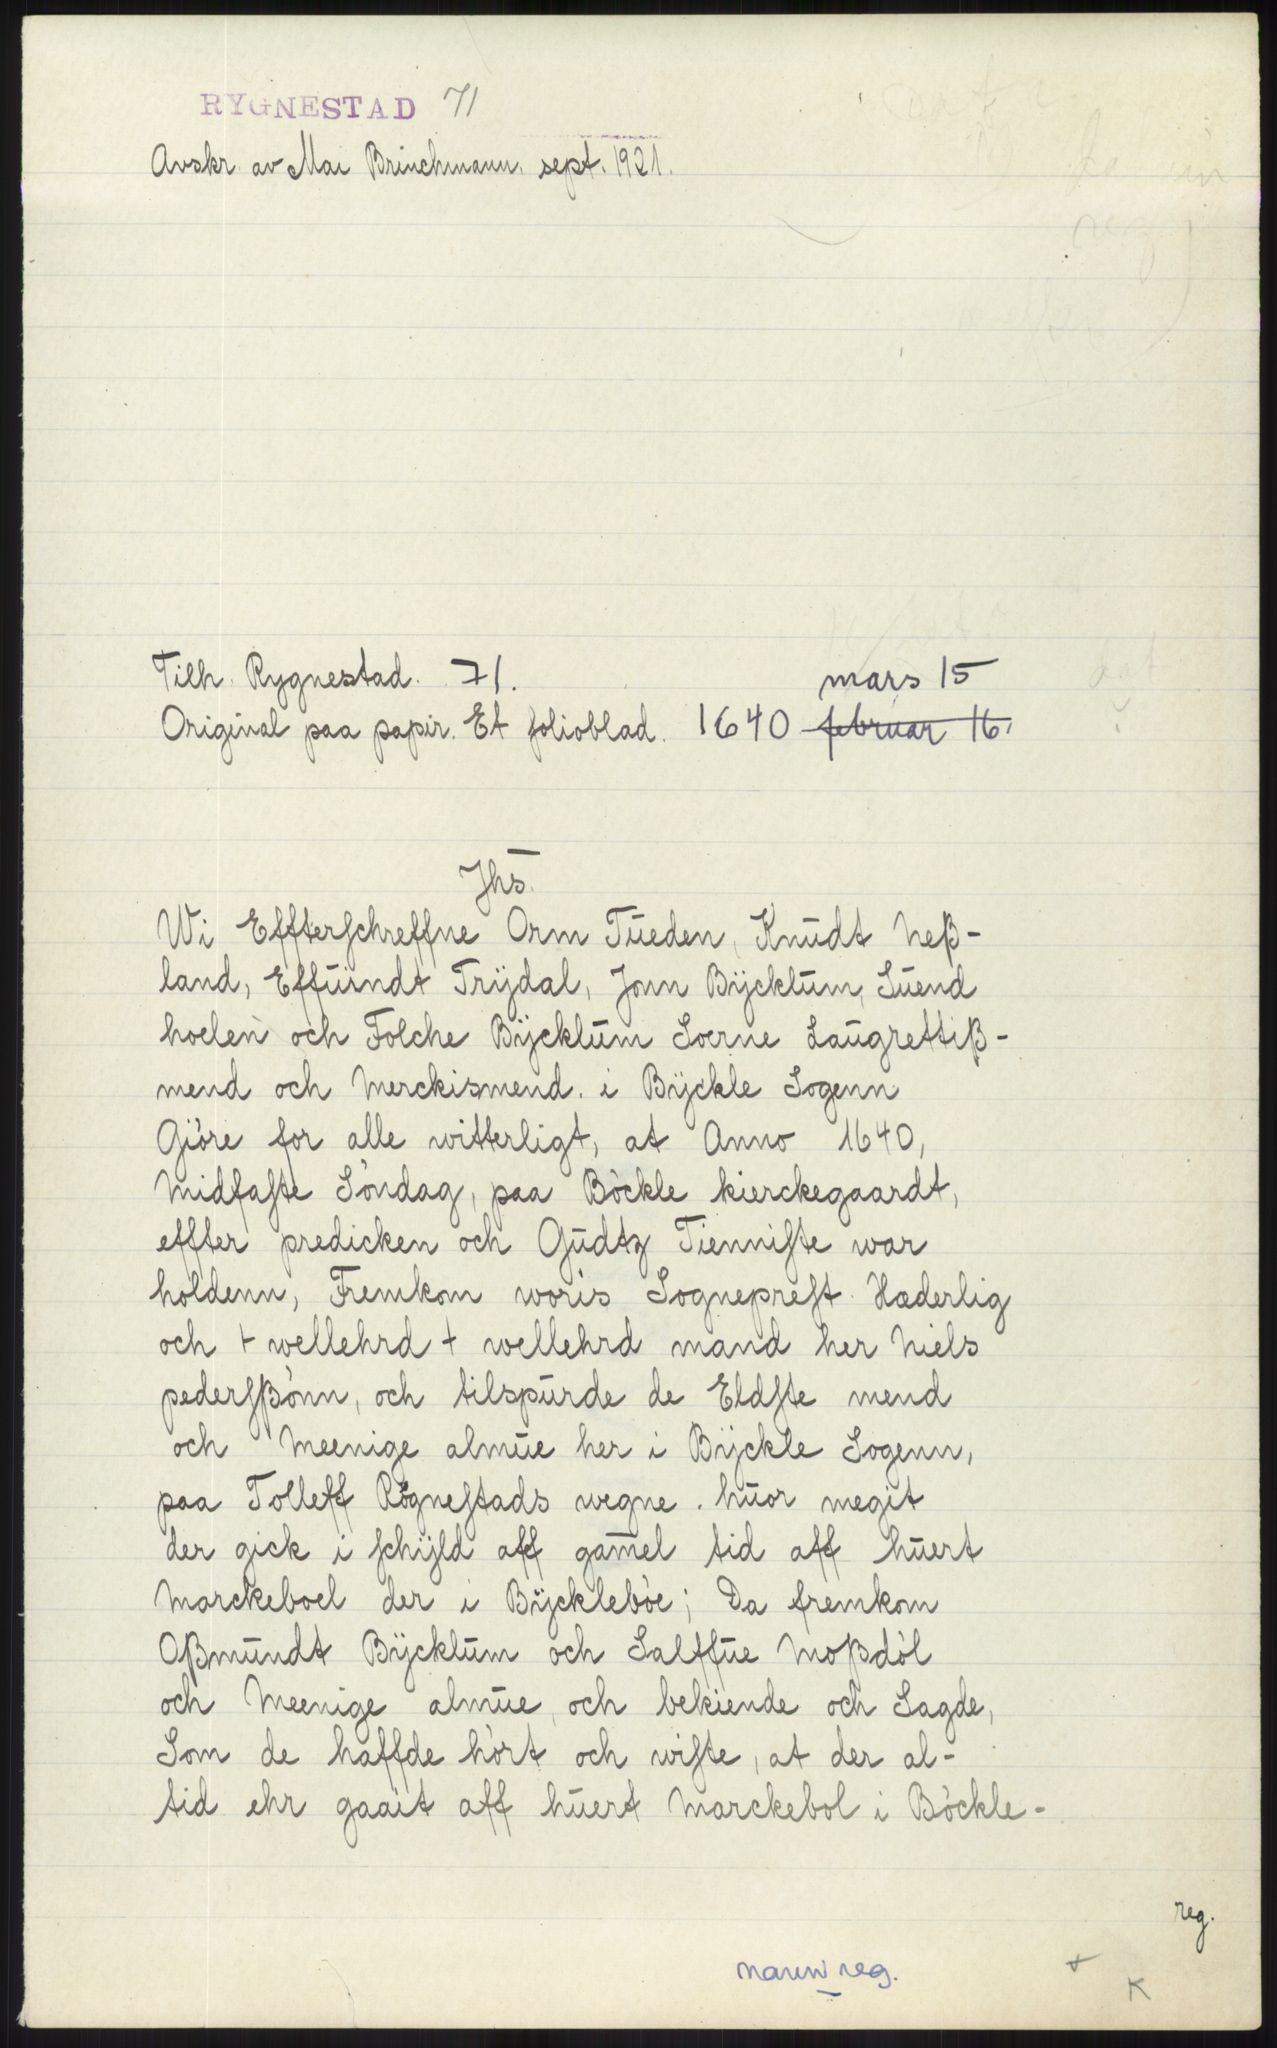 RYGNESTAD 71
Avskr. av Mai Brinchmann. sept. 1921.
Tilh. Rygnestad. 71.
mars 15
Original paa papir. Et folioblad. 1640 februar 16.
Jhs̄.
Wi Effterschreffne Orm Tueden, Knudt Neß-
land, Effuindt Trÿdal, Jonn Bÿcklum, Suend
hoelen och Folche Bÿcklum Soerne Laugrettiß-
mend och Merckismend. i Bÿckle Sogenn
Giöre for alle witterligt, at Anno 1640,
Midfaste Söndag, paa Böckle kierckegaardt,
effter predicken och Gudtz Tienniste war
holdenn, Fremkom woris Sogneprest Hæderlig
och + wellehrd + wellehrd mand her Niels
pedersßönn, och tilspurde de Eldste mend
och Meenige almue her i Bÿckle Sogenn,
paa Tolleff Rögnestads wegne. huor megit
der gick i schÿld aff gam̄el tid aff huert
Marckeboel der i Bÿckleböe; Da fremkom
Oßmundt Bÿcklum och Salffue Moßdöl
och Meenige almue, och bekiende och Sagde,
Som de haffde hört och wiste, at der al-
tid ehr gaait aff huert Marckebol i Böckle-
reg.
navnereg.
+
K